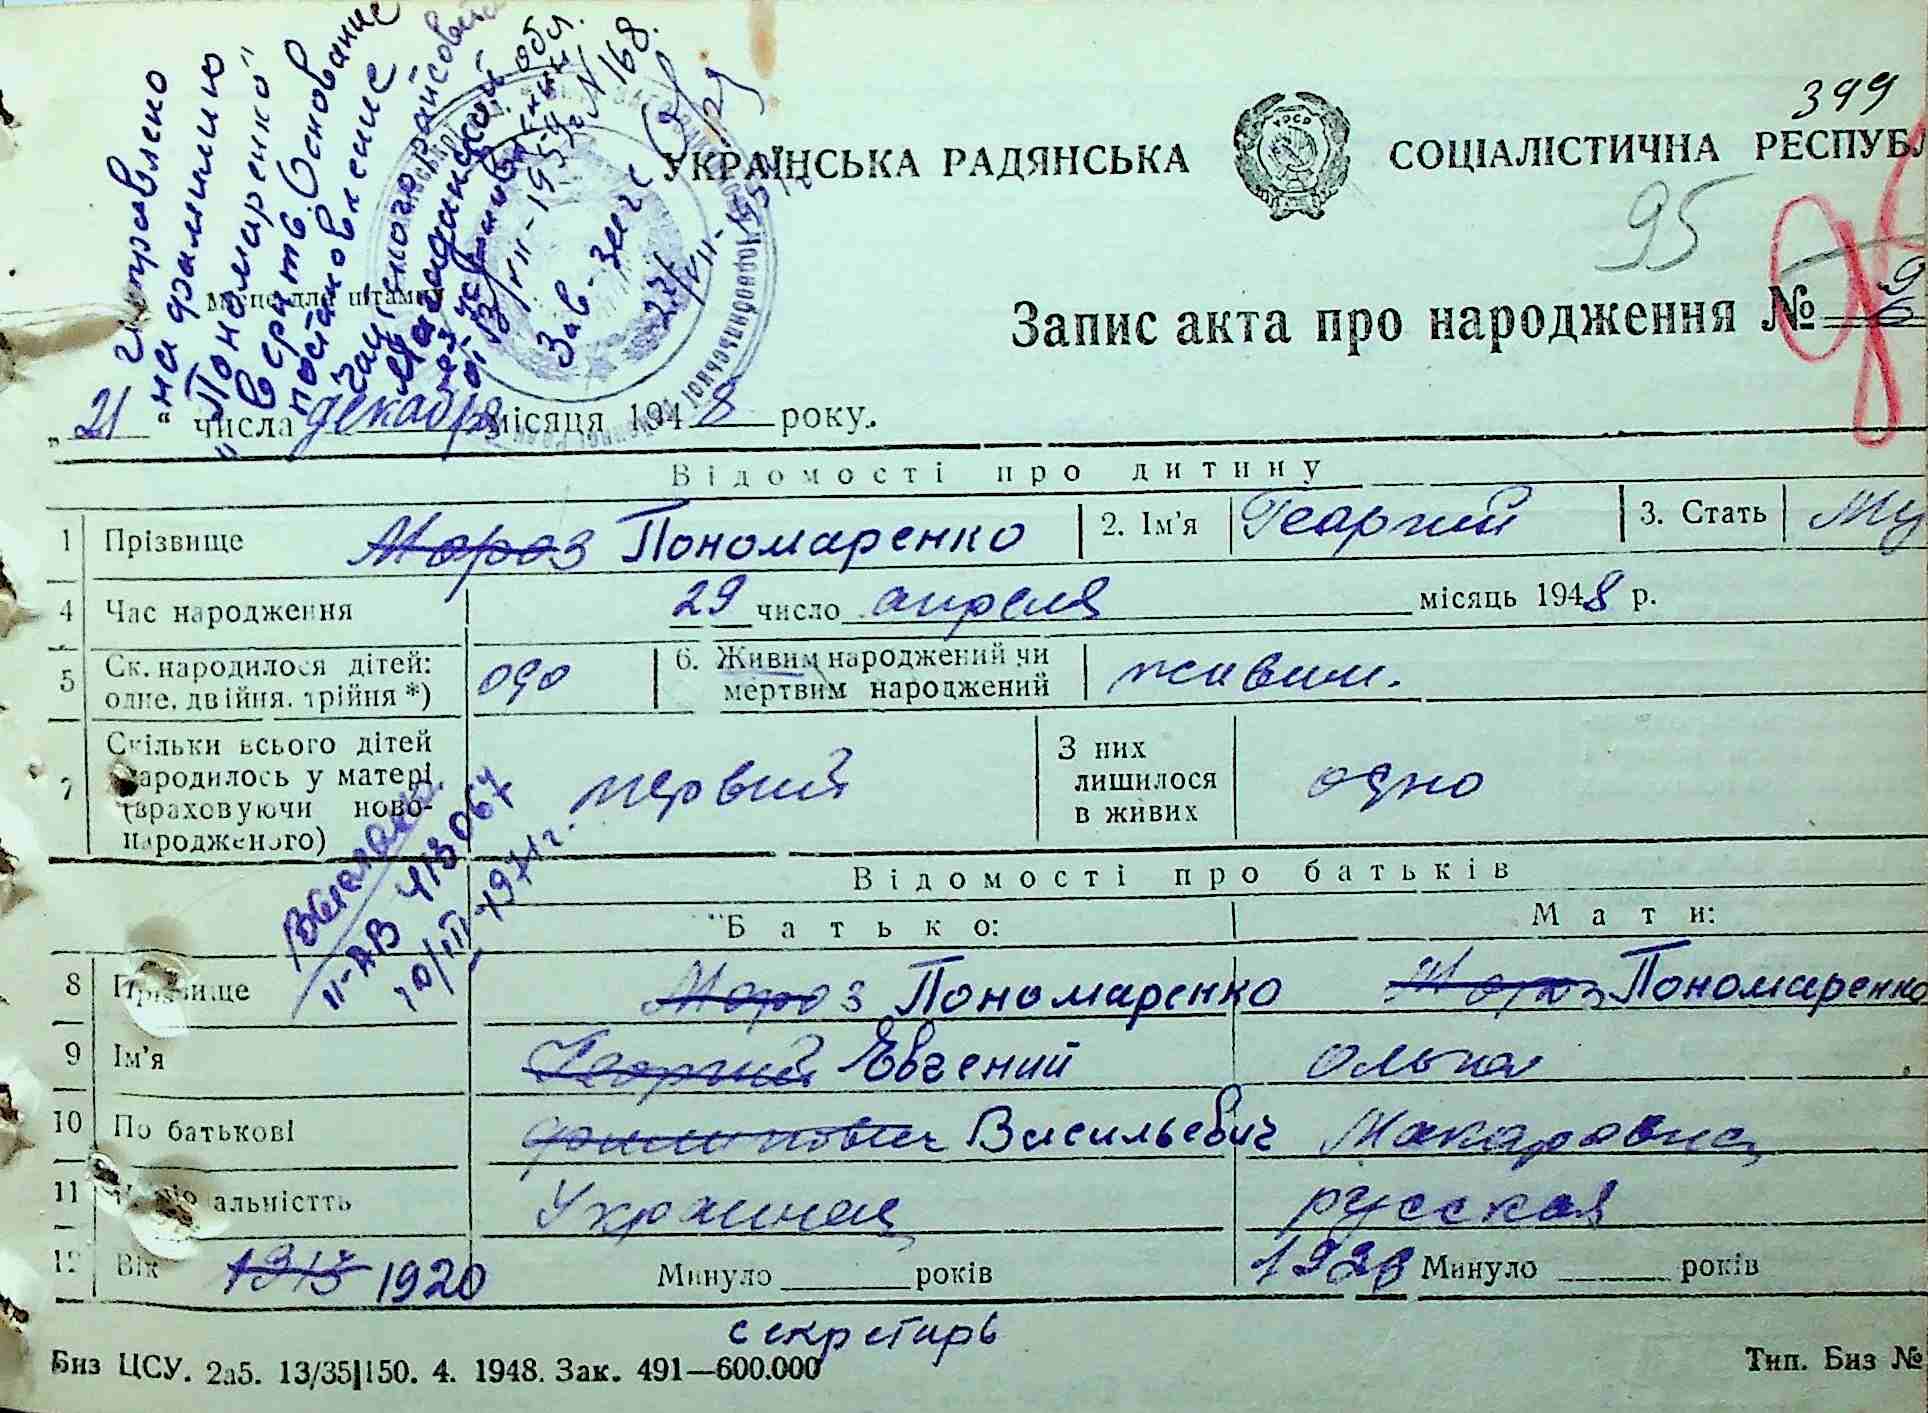 исправлено
на фамилию
"Пономаренко"
в сргтв. Основание
постановление
райсовета
Магаданской обл.
от 13/VII-195 N 168.
Зав. загс
27/VII-195
399
УКРАЇНСЬКА РАДЯНСЬКА СОЦІАЛІСТИЧНА РЕСПУБЛ
95
Місце для штампу
Запис акта про народження №
„21“ числа декабря місяця 1948 року.
Відомості про дитину
1 Прізвище Мороз Пономаренко 2. Ім'я Георгий 3. Стать Му
4 Час народження 29 число апреля місяць 1948 р.
5 Ск. народилося дітей: одне, двійня, трійня *) одо 6. Живим народжений чи мертвим народжений живим.
7 Скільки всього дітей народилось у матері (враховуючи новонародженого) первий З них лишилося в живих одно
II-АВ 413067
10/III-1971г.
Відомості про батьків
Батько: Мати:
8 Прізвище Мороз Пономаренко Мороз Пономаренко
9 Ім'я Георгий Евгений Ольга
10 По батькові Филипович Васильевич Макаровна
11 Національність Украинец русская
12 Вік 1915 1920 Минуло ______ років 1923 Минуло ______ років
секретарь
Биз ЦСУ. 2а5. 13/35|150. 4. 1948. Зак. 491—600.000 Тип. Биз №